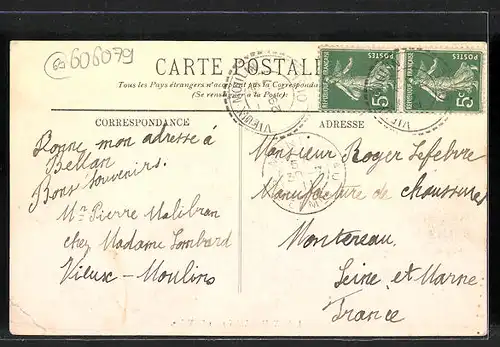 69 606079
CARTE POSTALE
Tous les Pays étrangers n'acceptent pas la Correspondance
(Se renseigner à la Poste).
CORRESPONDANCE
Donne mon adresse à
Bellan
Bons souvenirs.
Mr Pierre Malibran
chez Madame Lombard
Vieux-Moulins
ADRESSE
Monsieur Roger Lefebvre
Manufacture de chaussures
Montereau
Seine et Marne
France
POSTES
5c
REPUBLIQUE FRANÇAISE
POSTES
5c
REPUBLIQUE FRANÇAISE
VIEUX-MOULIN